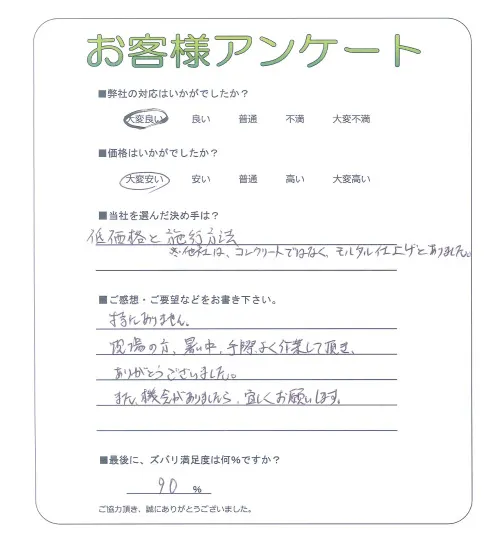 お客様アンケート
■弊社の対応はいかがでしたか？
大変良い 良い 普通 不満 大変不満
■価格はいかがでしたか？
大変安い 安い 普通 高い 大変高い
■当社を選んだ決め手は？
低価格と施行方法
※他社は、コンクリートではなく、モルタル仕上げとありました。
■ご感想・ご要望などをお書き下さい。
特にありません。
現場の方、暑い中、手際よく作業して頂き、
ありがとうございました。
また、機会がありましたら、宜しくお願いします。
■最後に、ズバリ満足度は何%ですか？
90 %
ご協力頂き、誠にありがとうございました。